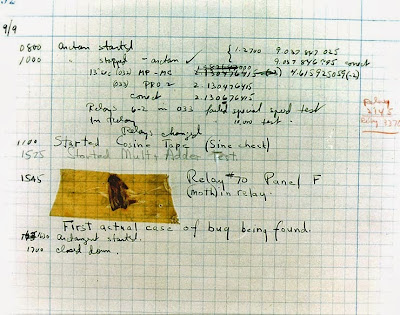 9/9
0800 Antan started { 1.2700 9.037 847 025
1000 " stopped - antan ✓ 9.037 846 995 correct
13"uc (032) MP-MC 2.130476415 4.615925059(-2)
(033) PRO 2 2.130476415
correct 2.130676415
Relays 6-2 in 033 failed special speed test
in relay 10.000 test.
Relays changed
1100 Started Cosine Tape (Sine check)
1525 Started Mult+Adder Test.
1545 Relay #70 Panel F
(moth) in relay.
First actual case of bug being found.
1630 antangent started.
1700 closed down.
Relay
2145
Relay 3370